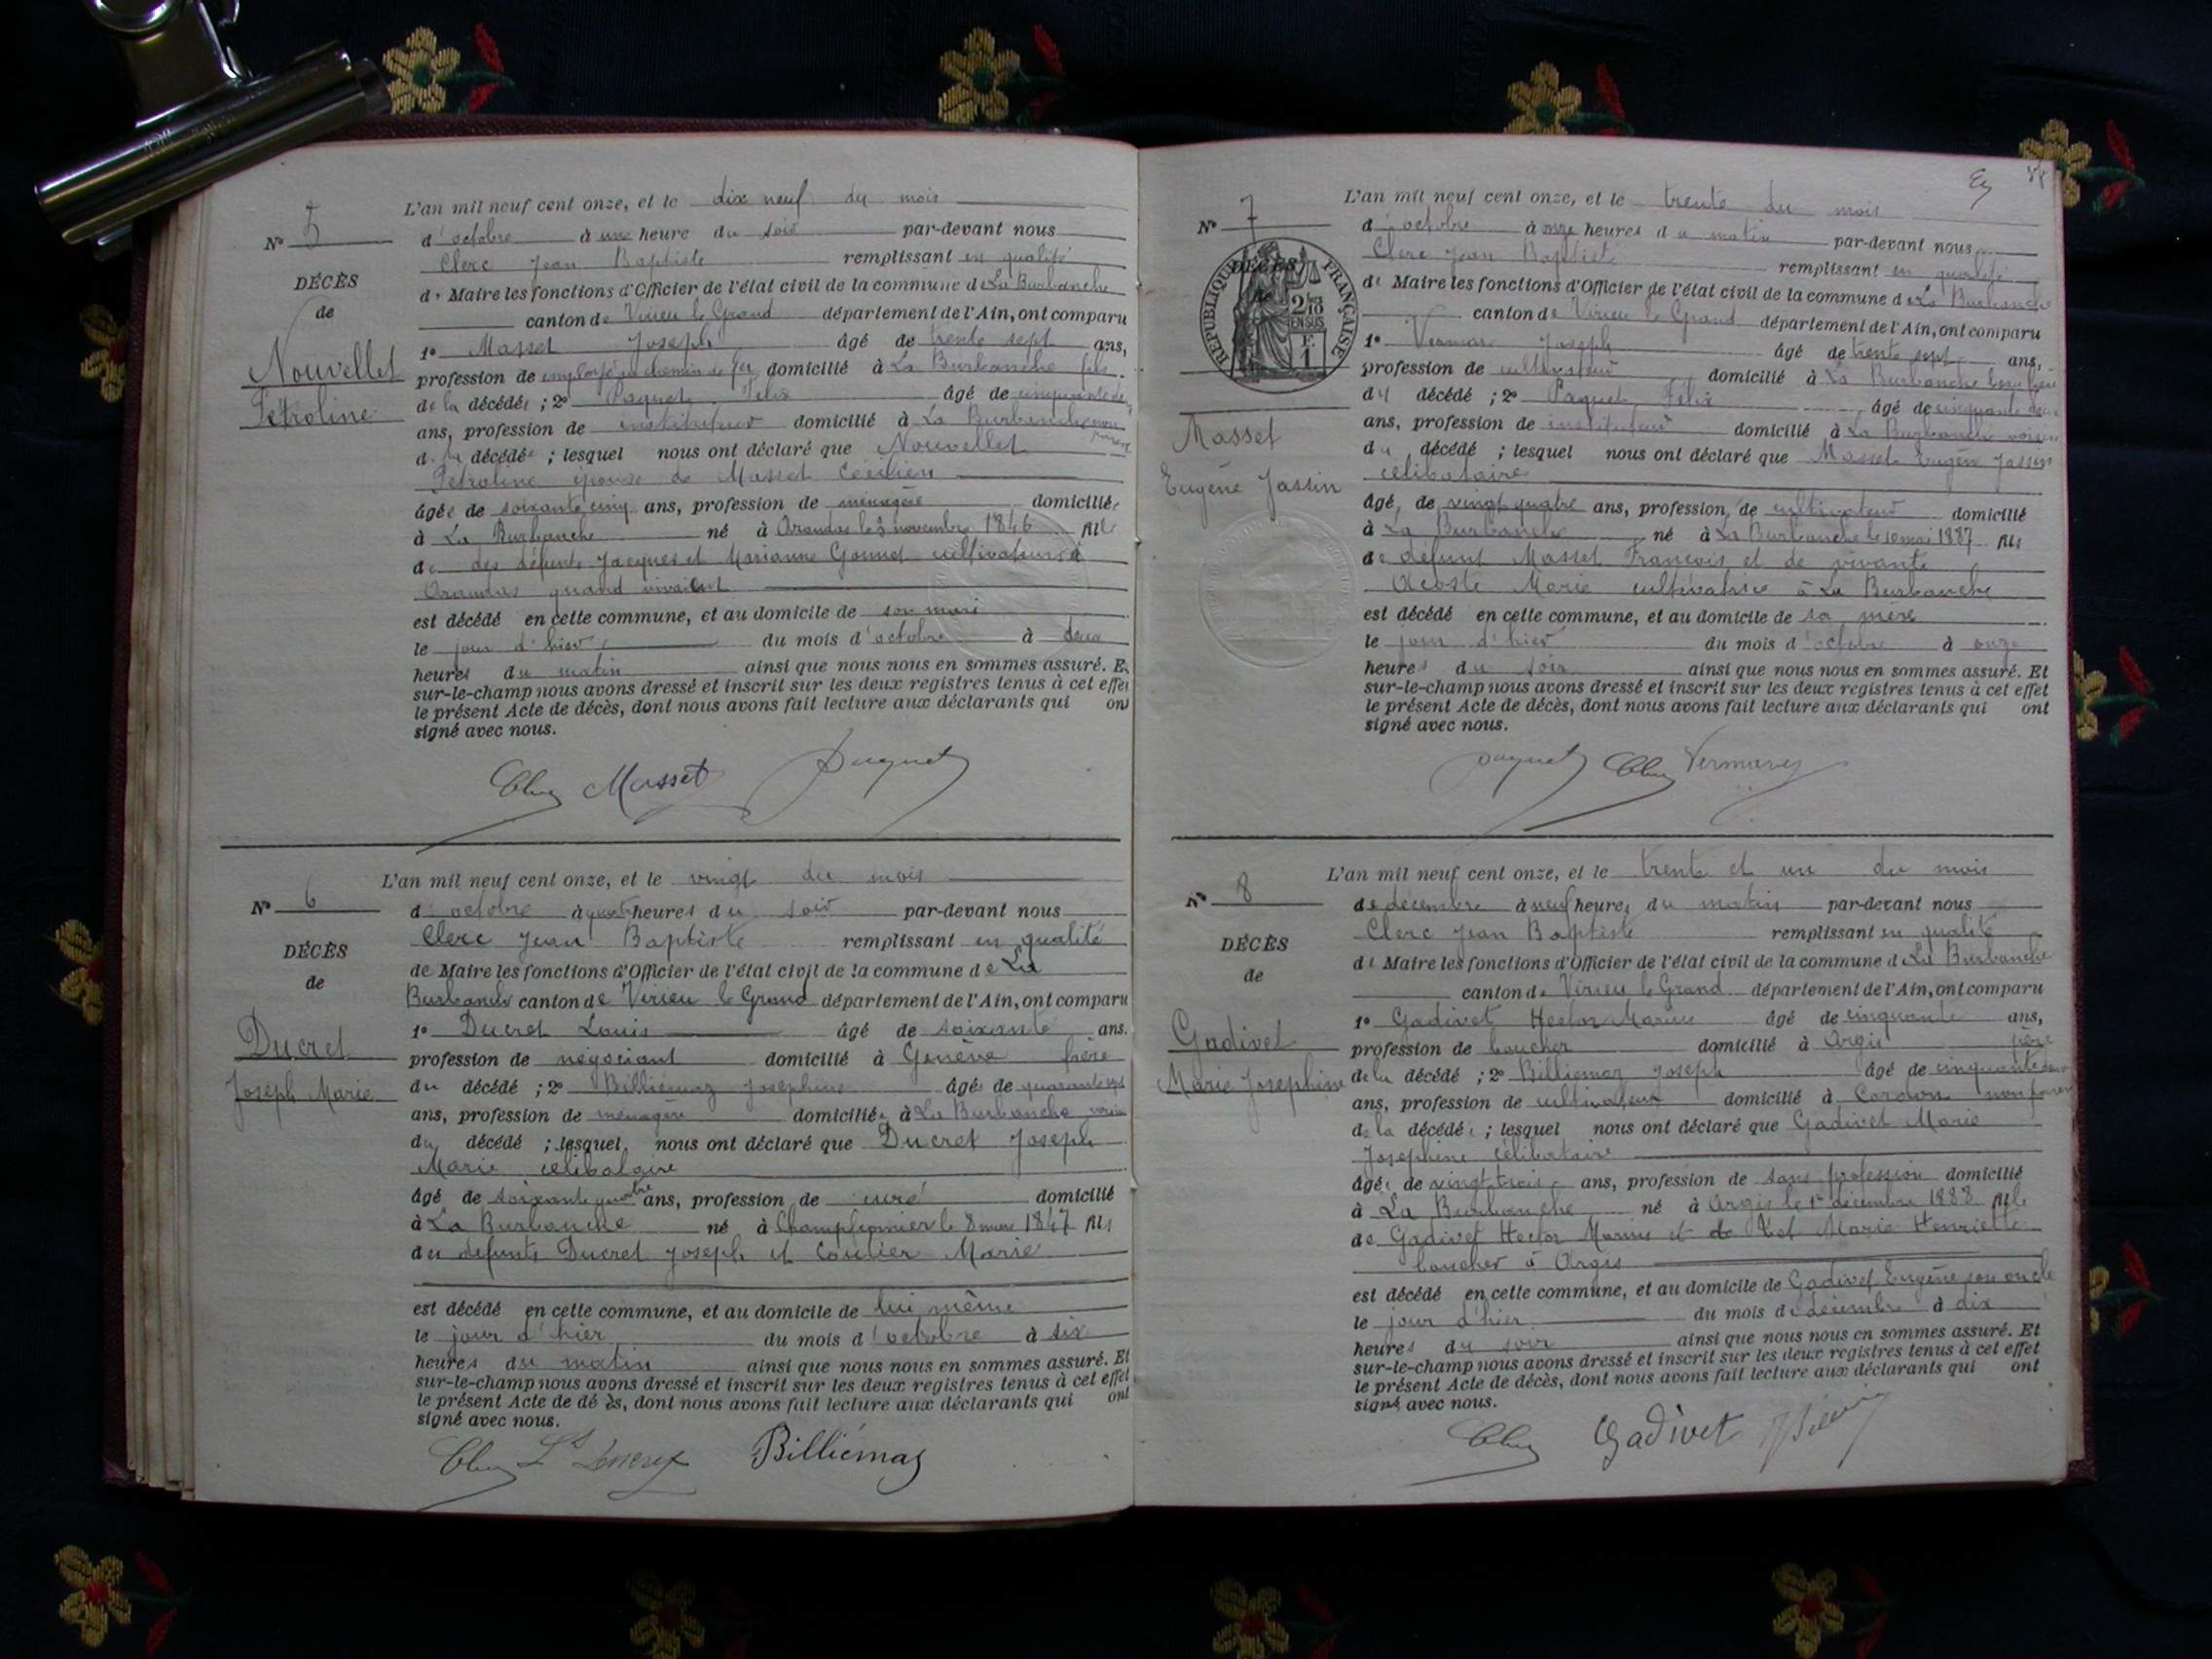 N° 5
DÉCÈS
de
Nouvellet
Pétroline
L'an mil neuf cent onze, et le dix neuf du mois
d'octobre à une heure du soir par-devant nous
Clerc Jean Baptiste remplissant en qualité
de Maire les fonctions d'Officier de l'état civil de la commune de La Burbanche
canton de Virieu le Grand département de l'Ain, ont comparu
1° Masset Joseph âgé de trente sept ans,
profession de employé au chemin de fer domicilié à La Burbanche fils
de la décédée ; 2° Paquet Félix âgé de cinquante deux
ans, profession de instituteur domicilié à La Burbanche non parent
de la décédée ; lesquel nous ont déclaré que Nouvellet
Pétroline épouse de Masset
âgée de soixante cinq ans, profession de ménagère domiciliée
à La Burbanche né à Arandas le 3 novembre 1846 fille
de des défunts Jacques et Marianne Gonnet cultivateurs à
Arandas quand vivaient
est décédé en cette commune, et au domicile de son mari
le jour d'hier du mois d'octobre à deux
heures du matin ainsi que nous nous en sommes assuré. Et
sur-le-champ nous avons dressé et inscrit sur les deux registres tenus à cet effet
le présent Acte de décès, dont nous avons fait lecture aux déclarants qui ont
signé avec nous.
Clerc Masset Paquet
N° 6
DÉCÈS
de
Ducret
Joseph Marie
L'an mil neuf cent onze, et le vingt du mois
d'octobre à quatre heures du soir par-devant nous
Clerc Jean Baptiste remplissant en qualité
de Maire les fonctions d'Officier de l'état civil de la commune de La
Burbanche canton de Virieu le Grand département de l'Ain, ont comparu
1° Ducret Louis âgé de soixante ans.
profession de négociant domicilié à Genève frère
du décédé ; 2° Billiémaz Joséphine âgée de quarante
ans, profession de ménagère domiciliée à La Burbanche voisine
du décédé ; lesquel nous ont déclaré que Ducret Joseph
Marie célibataire
âgé de soixante quatre ans, profession de curé domicilié
à La Burbanche né à le 8 mars 1847 fils
des défunts Ducret Joseph et Marie
est décédé en cette commune, et au domicile de lui même
le jour d'hier du mois d'octobre à six
heures du matin ainsi que nous nous en sommes assuré. Et
sur-le-champ nous avons dressé et inscrit sur les deux registres tenus à cet effet
le présent Acte de dé ès, dont nous avons fait lecture aux déclarants qui ont
signé avec nous.
Clerc Ls Ducret Billiémaz
N° 7
DÉCÈS
de
RÉPUBLIQUE FRANÇAISE
2/10 EN SUS
F. 1
Masset
Eugène Jassin
L'an mil neuf cent onze, et le trente du mois
d'octobre à onze heures du matin par-devant nous
Clerc Jean Baptiste remplissant en qualité
de Maire les fonctions d'Officier de l'état civil de la commune de La Burbanche
canton de Virieu le Grand département de l'Ain, ont comparu
1° Joseph âgé de trente sept ans,
profession de cultivateur domicilié à La Burbanche beau frère
du décédé ; 2° Paquet Félix âgé de cinquante deux
ans, profession de instituteur domicilié à La Burbanche voisin
du décédé ; lesquel nous ont déclaré que Masset Eugène Jassin
célibataire
âgé de vingt quatre ans, profession de cultivateur domicilié
à La Burbanche né à La Burbanche le 10 mai 1887 fils
de défunt Masset François et de vivante
Acoste Marie cultivatrice à La Burbanche
est décédé en cette commune, et au domicile de sa mère
le jour d'hier du mois d'octobre à onze
heures du soir ainsi que nous nous en sommes assuré. Et
sur-le-champ nous avons dressé et inscrit sur les deux registres tenus à cet effet
le présent Acte de décès, dont nous avons fait lecture aux déclarants qui ont
signé avec nous.
Paquet Clerc
N° 8
DÉCÈS
de
Gadivet
Marie Joséphine
L'an mil neuf cent onze, et le trente et un du mois
de décembre à neuf heures du matin par-devant nous
Clerc Jean Baptiste remplissant en qualité
de Maire les fonctions d'Officier de l'état civil de la commune de La Burbanche
canton de Virieu le Grand département de l'Ain, ont comparu
1° Gadivet Hector Marius âgé de cinquante ans,
profession de boucher domicilié à Argis père
de la décédée ; 2° Billiemaz Joseph âgé de cinquante deux
ans, profession de cultivateur domicilié à Cordon non parent
de la décédée ; lesquel nous ont déclaré que Gadivet Marie
Joséphine célibataire
âgée de vingt trois ans, profession de sans profession domicilié
à La Burbanche né à Argis le 1er décembre 1888 fille
de Gadivet Hector Marius et de Marie Henriette
boucher à Argis
est décédé en cette commune, et au domicile de Gadivet Eugène son oncle
le jour d'hier du mois de décembre à dix
heures du soir ainsi que nous nous en sommes assuré. Et
sur-le-champ nous avons dressé et inscrit sur les deux registres tenus à cet effet
le présent Acte de décès, dont nous avons fait lecture aux déclarants qui ont
signé avec nous.
Clerc Gadivet